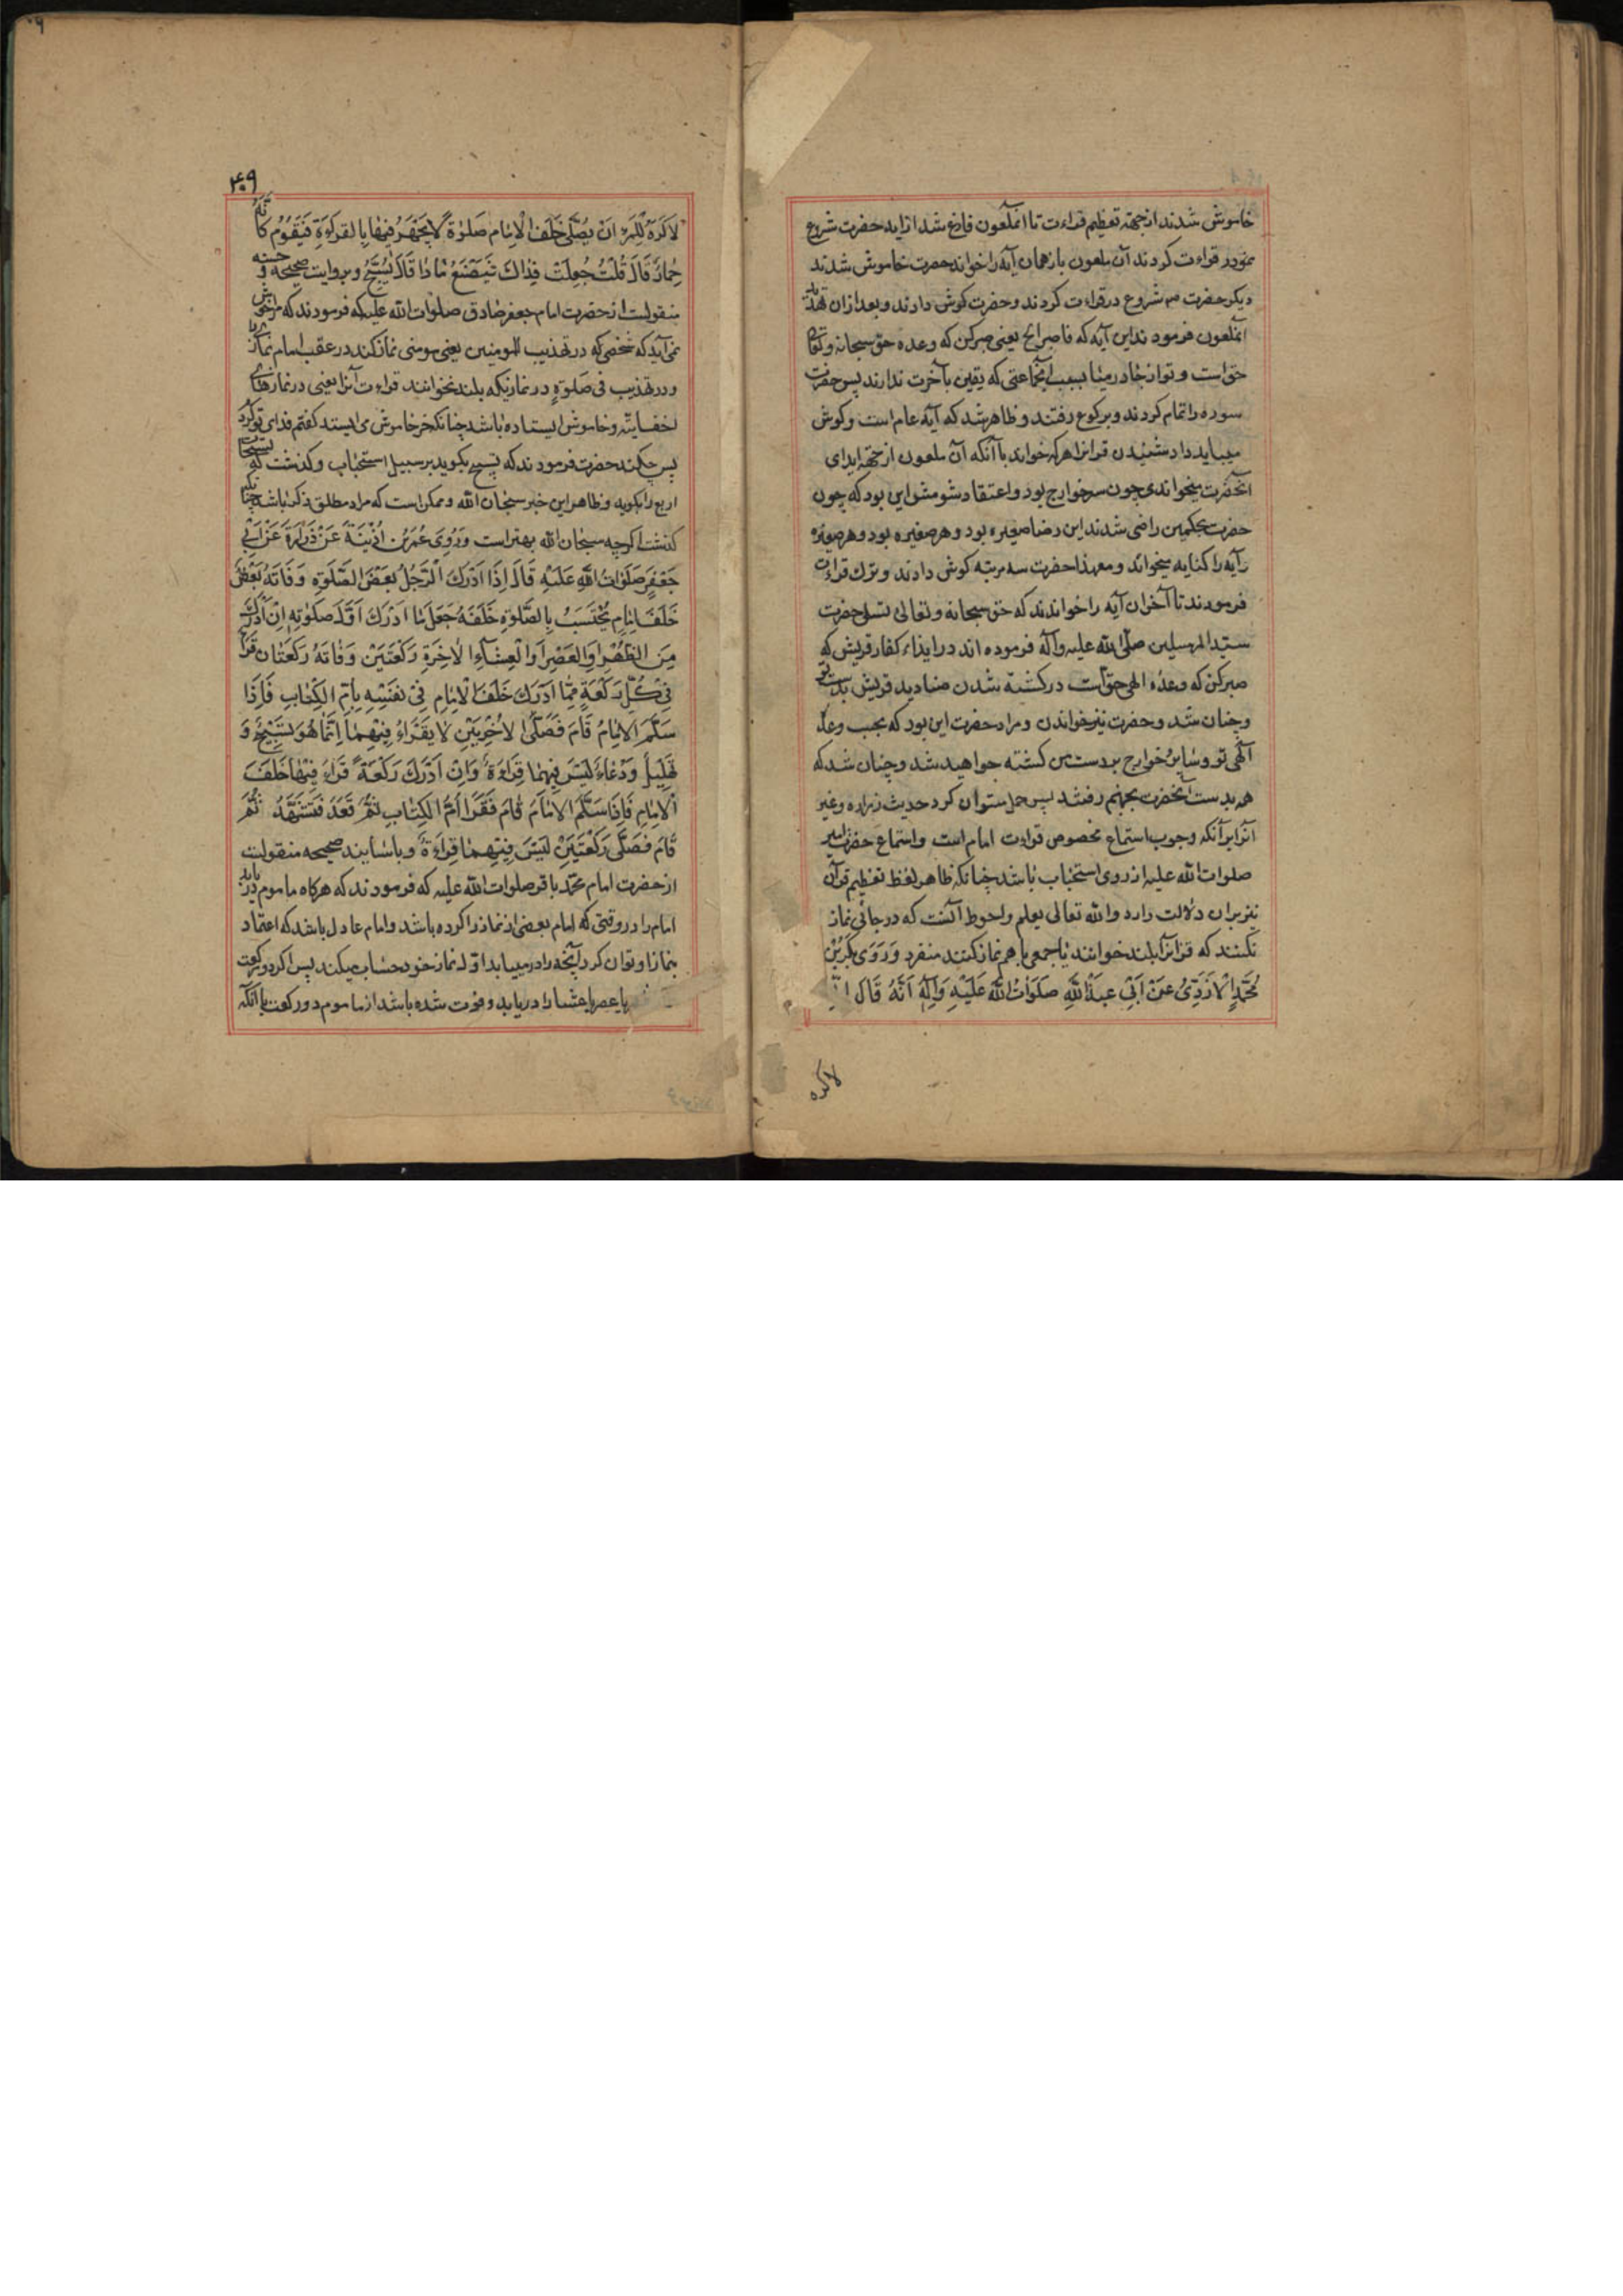 خاموش شدند از جهة تعظیم قراءت تا انملعون فارغ شد از ایه حضرت شروع
نمودر قراءت کردند آن ملعون باز همان آیه را خواند حضرت خاموش شدند
دیکر حضرت هم شروع در قراءت کردند و حضرت کوش دادند و بعد ازان
انملعون فرمودند این آیه که فاصبر الخ یعنی صبر کن که وعده حق سبحانه وتعالی
حق است و تو از جا در میا بسبب انجماعتی که یقین بآخرت ندارند پس حضرت
سوره را تمام کردند و برکوع رفتند و ظاهر شد که آیه عام است و کوش
میباید داد شنیدن قرانرا هر که خواند با آنکه آن ملعون از جهة ایذای
انحضرت میخواندی چون سر خوارج بود و اعتقاد شومش این بود که چون
حضرت بحکمین راضی شدند این رضا صغیره بود و هر صغیره بود و هر صغیره
رآیه را کنایه میخواند و معهذا حضرت سه مرتبه کوش دادند و ترك قراءت
فرمودند تا آخران آیه را خواندند که حق سبحانه وتعالی تسلی حضرت
سید المرسلین صلی الله علیه وآله فرموده اند در ایذاء کفار قریش که
صبر کن که وعدۀ الهی حق است در کشته شدن صنادید قریش بدست تو
و چنان شد و حضرت نیز خواندن و مراد حضرت این بود که بجب وعدۀ
آلهی تو و سایر خوارج بردست من کشته خواهید شد و چنان شد که
همه بدست آنحضرت بجهنم رفتند پس حمل ستوان کرد حدیث زراره و غیر
انرا بر آنکه وجوب استماع مخصوص قراءت امام است و استماع حضرت امیر
صلوات الله علیه از روی استحباب باشد چنانکه ظاهر لفظ تعظیم قرآن
نیز بران دلالت دارد والله تعالی یعلم و احوط آنست که در جائی نماز
نکنند که قرانرا بلند خوانند یا جمعی با هم نماز کنند منفرد وَرَوَی بَکرُبْنُ
مُحَمَّدٍ الْاَزَدِّیُ عَنْ اَبِی عَبدِاللّٰهِ صَلَوَاتُ اللّٰهِ عَلَیْهِ وَآلِهِ اَنَّهُ قَالَ
لاکره
۴۰۹
لَاَکرَهُ لِلمَرءِ اَنْ یُصَلِّیَ خَلفَ الْاِمَامِ صَلوٰةً لَا یَجْهَرُ فِیهَا بِالقِرَاءَةِ فَیَقُومُ کَاَنَّهُ
حِمَارٌ قَالَ قُلتُ جُعِلتُ فِدَاكَ فَیَصْنَعُ مَا ذَا قَالَ یُسَبِّحُ و بروایت صحیحه و حسنه
منقولست از حضرت امام جعفر صادق صلوات الله علیه که فرمودند که مرا خوش
نمی آید که شخصی که در تهذیب للمومنین یعنی مومنی نماز کند در عقب امام نمازی
و در تهذیب فی صلوةٍ در نمازیکه بلند نخوانند قراءت آنرا یعنی در نمازهای
اخفاییه و خاموش ایستاده باشد چنانکه خر خاموش می ایستد کفتم فدای تو کردم
پس چکند حضرت فرمودند که تسبیح بکوید بر سبیل استحباب و کذشت که تسبیحات
اربع را بکوید و ظاهر این خبر سبحان الله و ممکن است که مراد مطلق ذکر باشد چنانکه
کذشت اکرچه سبحان الله بهتر است وَرَوَی عُمَرُبْنُ اُذَیْنَةَ عَنْ زُرَارَةَ عَنْ اَبِی
جَعْفَرٍ صَلَوَاتُ اللّٰهِ عَلَیْهِ قَالَ اِذَا اَدْرَكَ الرَّجُلُ بَعْضَ الصَّلوةِ وَفَاتَهُ بَعْضٌ
خَلفَ اِمَامٍ یُحْتَسَبُ بِالصَّلوةِ خَلفَهُ جَعَلَ مَا اَدْرَكَ اَوَّلَ صَلوٰتِهِ اِنْ اَدْرَكَ
مِنَ الظُّهْرِ اَوِ العَصْرِ اَوِ الْعِشَاءِ الاٰخِرَةِ رَکعَتَیْنِ وَفَاتَهُ رَکعَتَان قَرَأَ
فِی کُلِّ رَکعَةٍ مِمَّا اَدْرَكَ خَلفَ الْاِمَامِ فِی نَفْسِهِ بِاُمِّ الکِتَابِ فَاِذَا
سَلَّمَ الاِمَامُ قَامَ فَصَلَّی الاُخْرَیَیْنِ لَا یَقْرَاُ فِیْهِمَا اِنَّمَا هُوَ تَسْبِیْحٌ وَ
تَهلِیلٌ وَدُعَاءٌ لَیْسَ فِیهِمَا قِرَاءَةٌ وَاِنْ اَدْرَكَ رَکعَةً قَرَاَ فِیْهَا خَلفَ
الْاِمَامِ فَاِذَا سَلَّمَ الاِمَامَ قَامَ فَقَرَأَ اُمَّ الکِتَابِ ثُمَّ قَعَدَ فَتَشَهَّدَ ثُمَّ
قَامَ فَصَلَّی رَکعَتَیْنِ لَیْسَ فِیْهِمَا قِرَاءَةٌ و باسانید صحیحه منقولست
از حضرت امام محمد باقر صلوات الله علیه که فرمودند که هرکاه ماموم دریابد
امام را در وقتی که امام بعضی از نماز را کرده باشد و امام عادل باشد که اعتماد
بنماز او توان کرد آنچه را در مییابد اول نماز خود حساب میکند پس اکر دو رکعت
یا عصر یا عشا را دریابد و فوت شده باشد از ماموم دو رکعت با آنکه